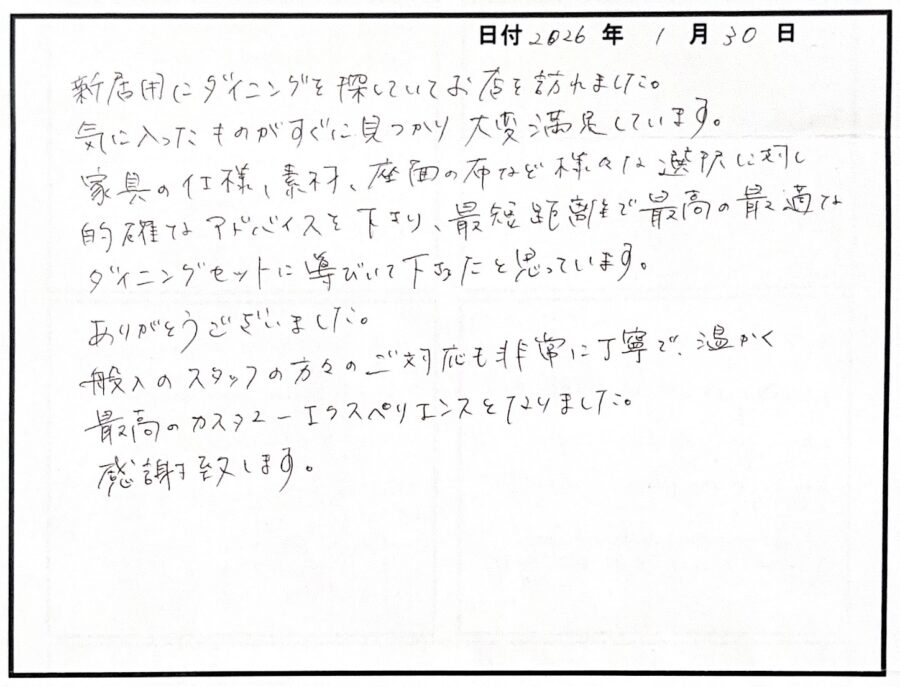 日付 2026 年 1 月 30 日
新居用にダイニングを探していてお店を訪れました。
気に入ったものがすぐに見つかり大変満足しています。
家具の仕様、素材、座面の布など様々な選択に対し
的確なアドバイスを下さり、最短距離で最高の最適な
ダイニングセットに導びいて下さったと思っています。
ありがとうございました。
搬入のスタッフの方々のご対応も非常に丁寧で、温かく
最高のカスタマーエクスペリエンスとなりました。
感謝致します。